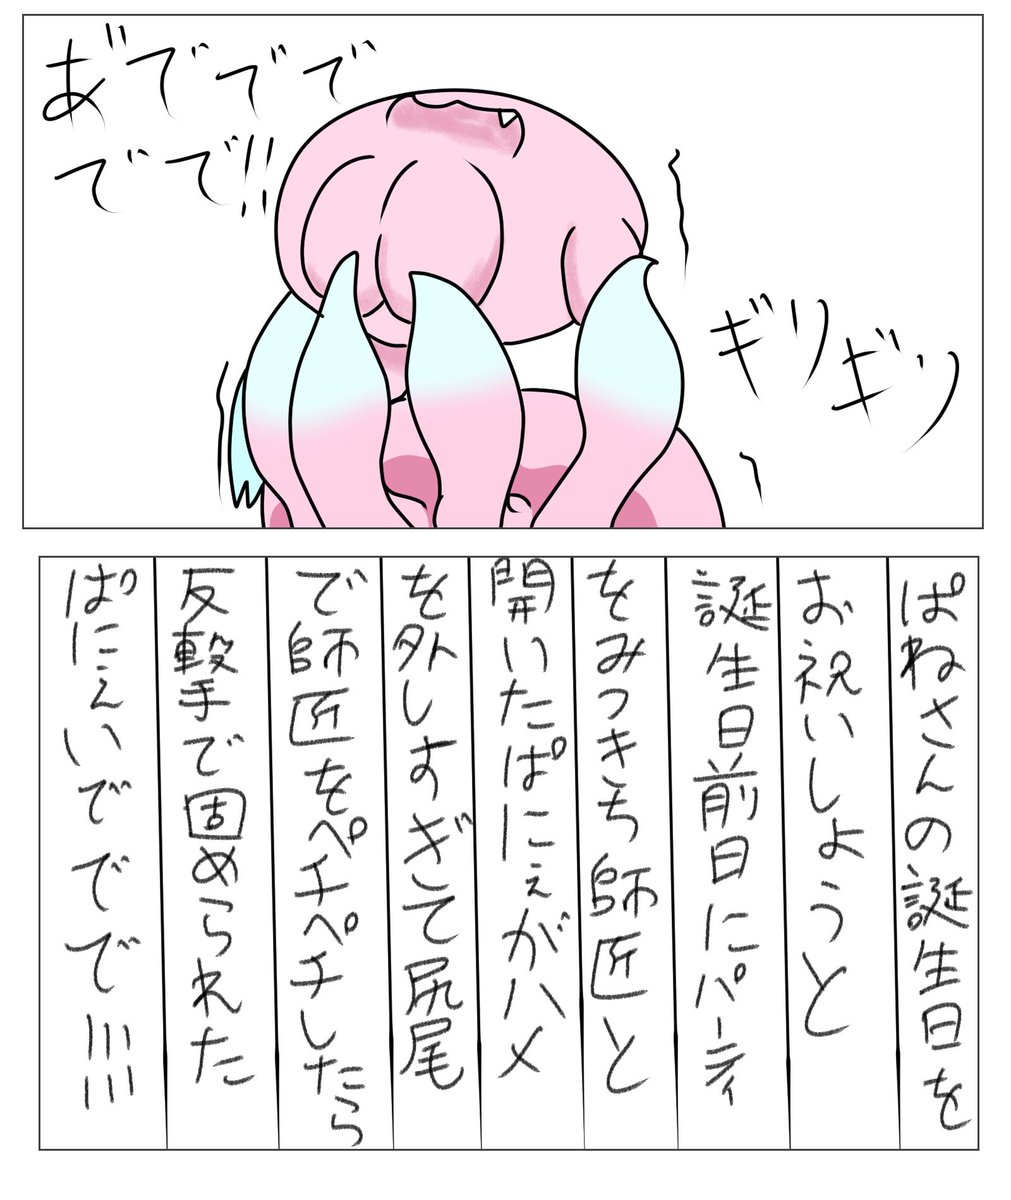 あ゛でででで
でで!!
ギリギリ
ぱねさんの誕生日を
お祝いしようと
誕生日前日にパーティ
をみつきち師匠と
開いたぱにぇがハメ
を外しすぎて尻尾
で師匠をペチペチしたら
反撃手で固められた
ぱにぇいででで!!!!!!